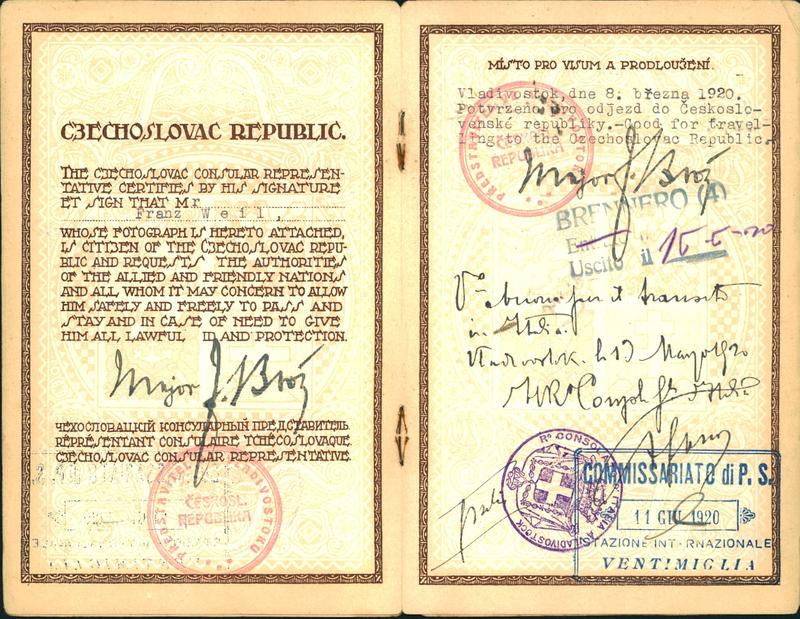 CZECHOSLOVAC REPUBLIC.
THE CZECHOSLOVAC CONSULAR REPRESEN-
TATIVE CERTIFIES BY HIS SIGNATURE
ET SIGN THAT Mr
Franz Weil,
WHOSE FOTOGRAPH IS HERETO ATTACHED,
IS CITIZEN OF THE CZECHOSLOVAC REPU-
BLIC AND REQUESTS THE AUTHORITIES
OF THE ALLIED AND FRIENDLY NATIONS
AND ALL WHOM IT MAY CONCERN TO ALLOW
HIM SAFELY AND FREELY TO PASS AND
STAY AND IN CASE OF NEED TO GIVE
HIM ALL LAWFUL ID AND PROTECTION.
Major J. Brož
ЧЕХОСЛОВАЦКІЙ КОНСУЛЯРНЫЙ ПРЕДСТАВИТЕЛЬ
REPRÉSENTANT CONSULAIRE TCHÉCOSLOVAQUE
CZECHOSLOVAC CONSULAR REPRESENTATIVE.
ČESKOSL.
REPUBLIKA
VLADIVOSTOKU
MÍSTO PRO VISUM A PRODLOUŽENÍ.
Vladivostok, dne 8. března 1920.
Potvrzeno pro odjezd do Českoslo-
venské republiky.-Good for travel-
ling to the Czechoslovac Republic.
REPUBLIKA
Major J. Brož
BRENNERO (4)
Uscito il 15-5-920
V° buono per il transito
in Italia
Vladivostok li 13 Marzo 1920
Il R° Consol
R° CONSOLATO D'ITALIA VLADIVOSTOCK
COMMISSARIATO di P. S.
11 GIU 1920
STAZIONE INTERNAZIONALE
VENTIMIGLIA